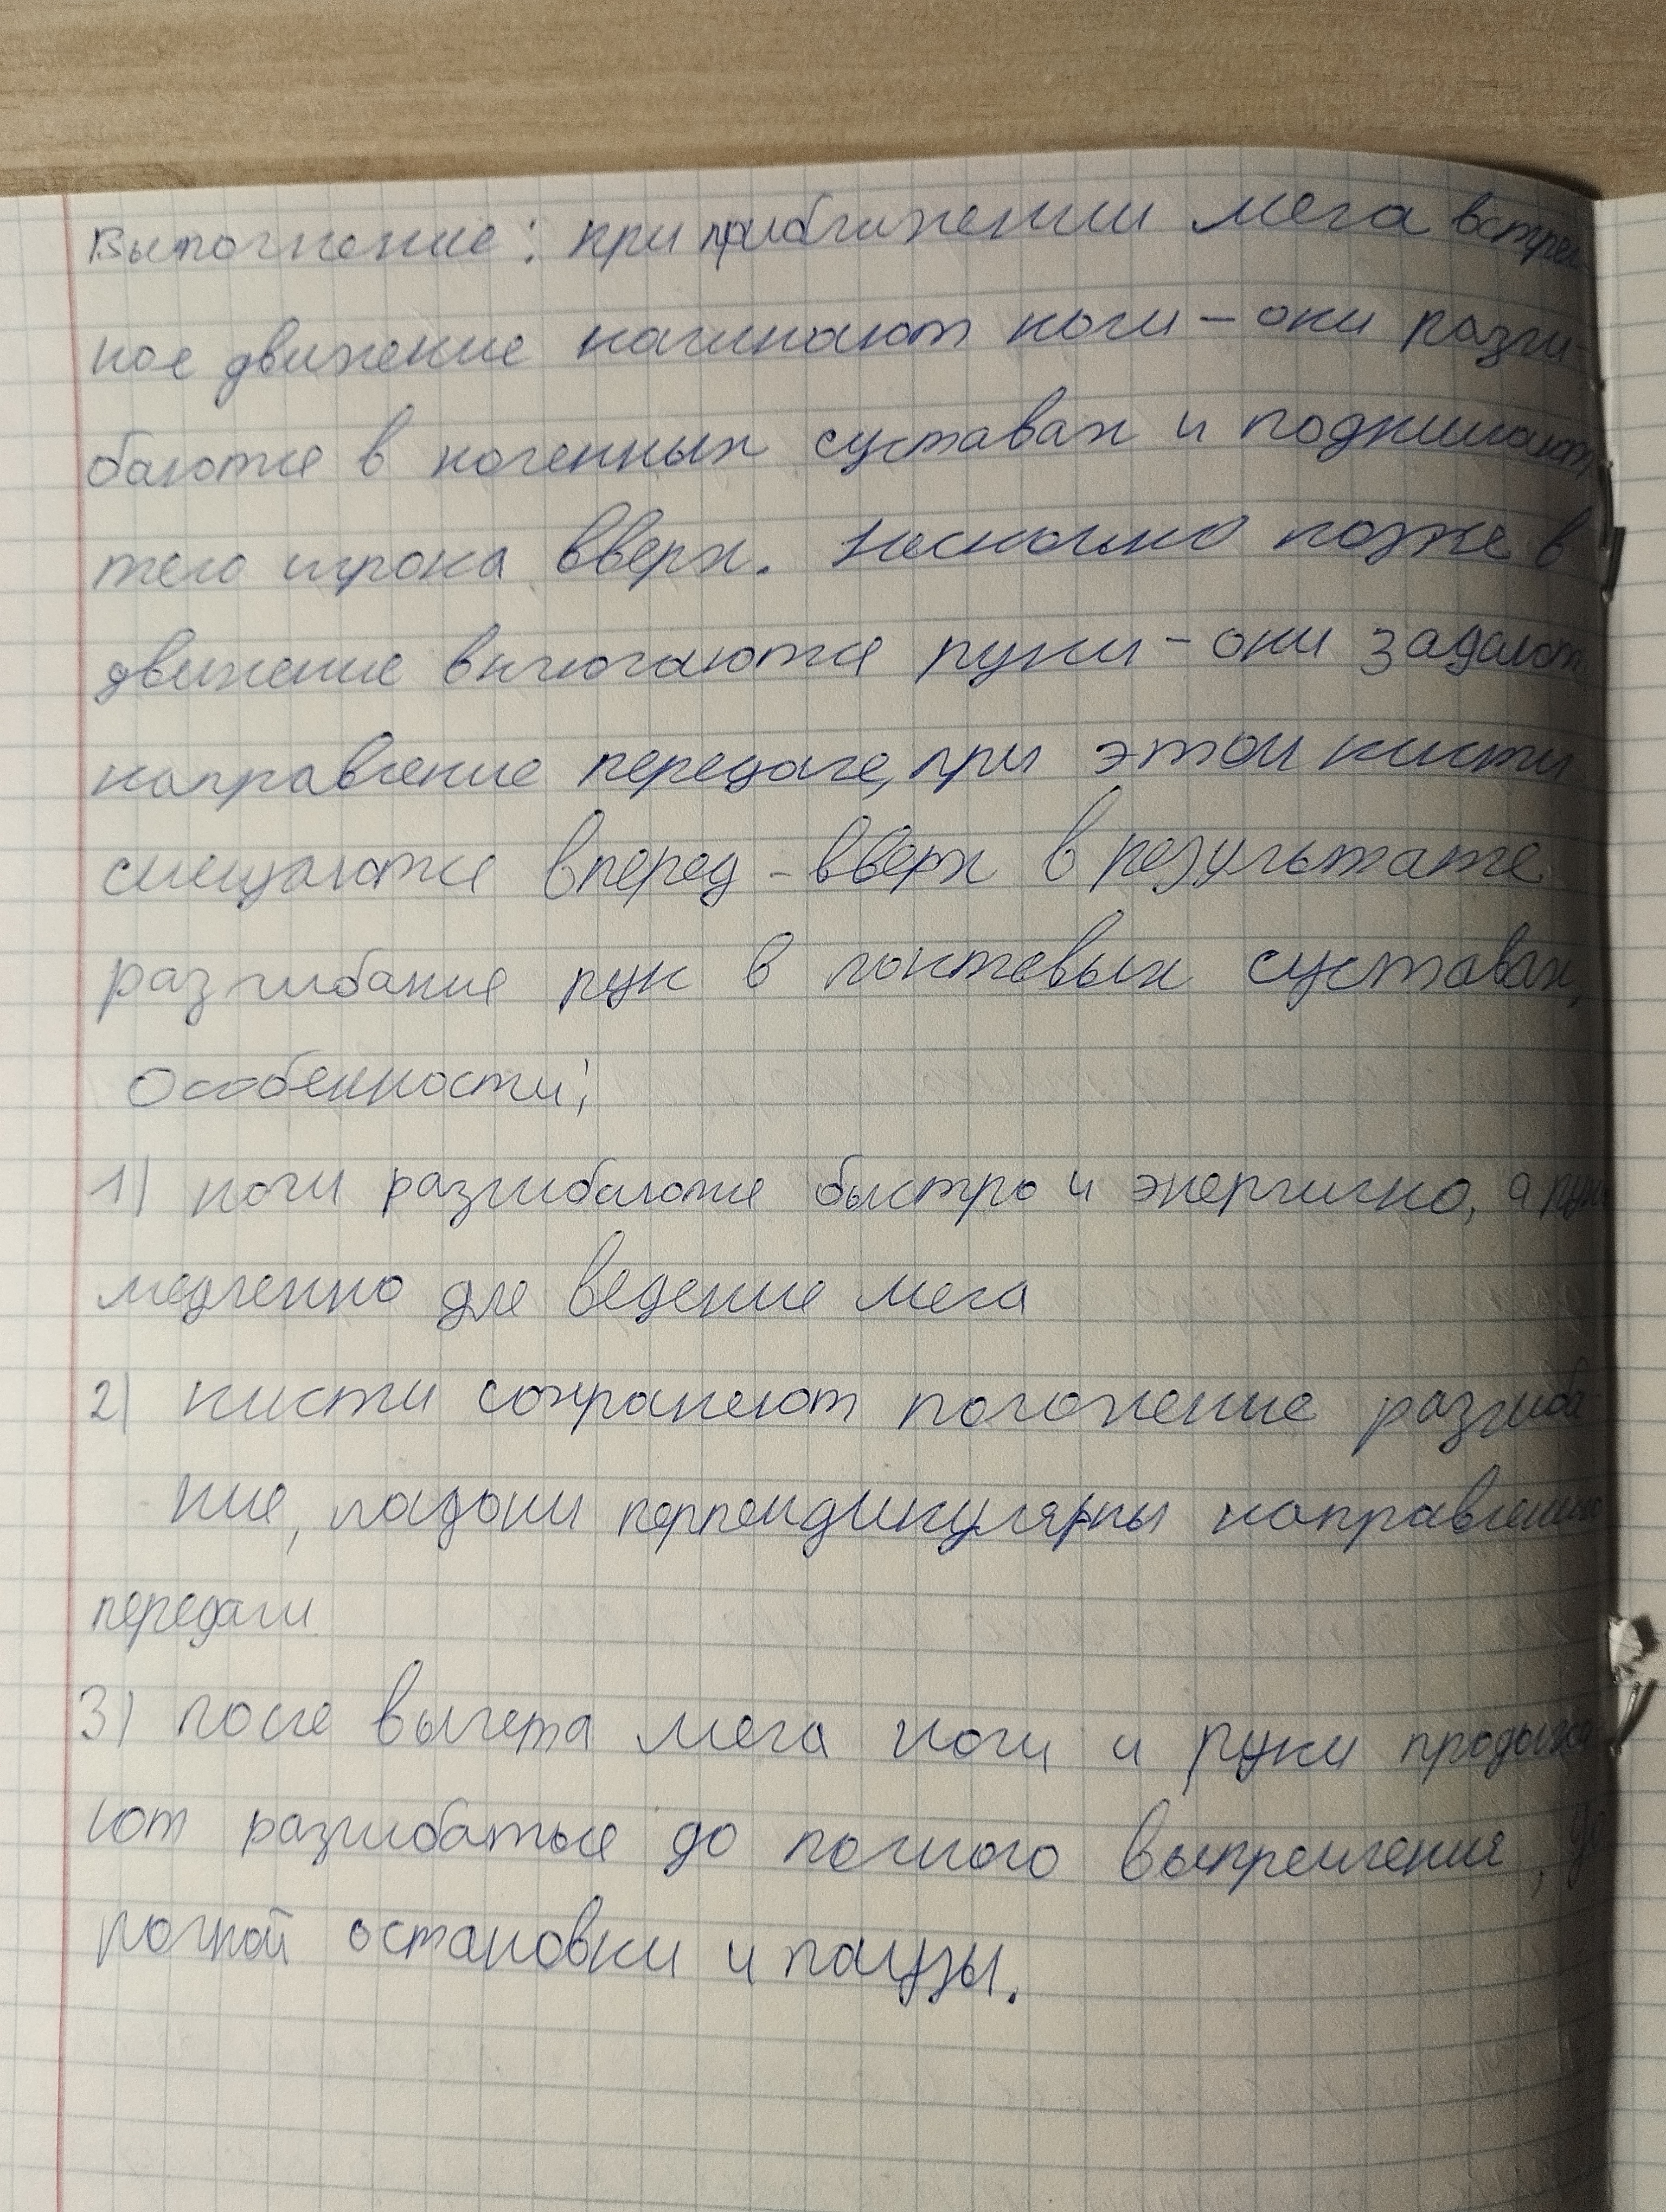 Выполнение: при приближении мяча встреч-
ное движение начинают ноги – они разги-
баются в коленных суставах и поднимают
тело игрока вверх. Несколько позже в
движение включаются руки – они задают
направление передаче, при этом кисти
смещаются вперед - вверх в результате
разгибание рук в локтевых суставах,
Особенности:
1) ноги разгибаются быстро и энергично, а руки
медленно для ведение мяча
2) кисти сохраняют положение разгиба
ние, ладони перпендикулярны направлению
передачи
3) после вылета мяча ноги и руки продолжа
ют разгибаться до полного выпремления, до
полной остановки и паузы.